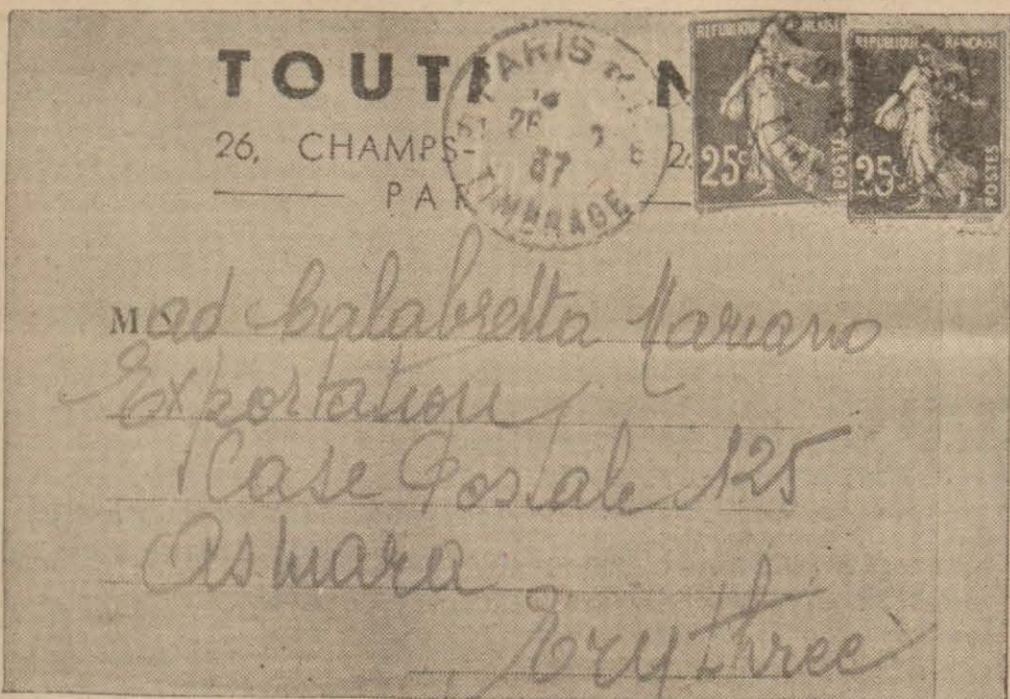 TOUT
26, CHAMPS-
PA
PARIS
25 2
37
TIMBRAGE
REPUBLIQUE FRANCAISE
25c POSTES
REPUBLIQUE FRANCAISE
25c POSTES
Mad Calabretta Mariano
Exportation
Case Postale 125
Asmara
Erythree